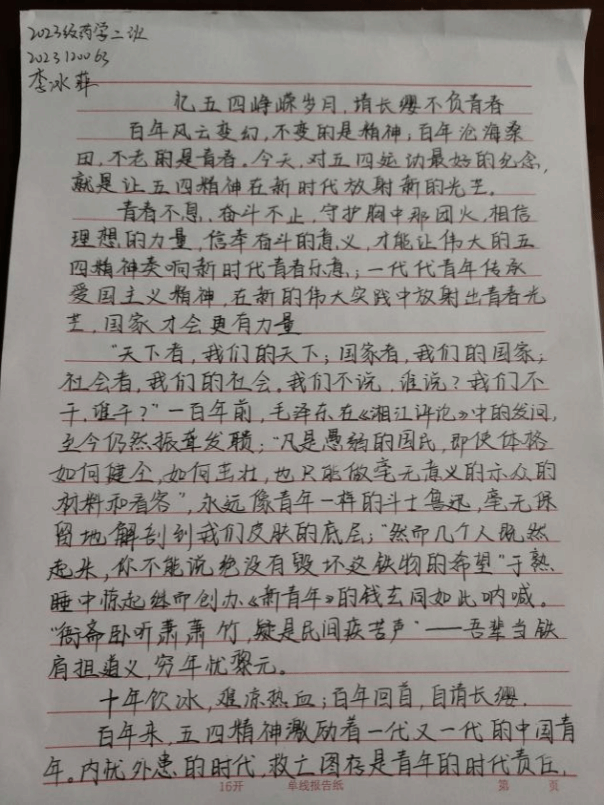 2023级药学二班
2023120063
李冰菲
忆五四峥嵘岁月,请长缨不负青春
百年风云变幻,不变的是精神;百年沧海桑
田,不老的是青春。今天,对五四运动最好的纪念,
就是让五四精神在新时代放射新的光芒。
青春不息,奋斗不止,守护胸中那团火,相信
理想的力量,信奉奋斗的意义,才能让伟大的五
四精神奏响新时代青春乐意;一代代青年传承
爱国主义精神,在新的伟大实践中放射出青春光
芒,国家才会更有力量
“天下者,我们的天下;国家者,我们的国家;
社会者,我们的社会。我们不说,谁说?我们不
干,谁干?”一百年前,毛泽东在《湘江评论》中的发问,
至今仍然振聋发聩;“凡是愚弱的国民,即使体格
如何健全,如何茁壮,也只能做毫无意义的示众的
材料和看客”,永远像青年一样的斗士鲁迅,毫无保
留地解剖到我们皮肤的底层;“然而几个人既然
起来,你不能说绝没有毁坏这铁物的希望”于熟
睡中惊起继而创办《新青年》的钱玄同如此呐喊。
“衙斋卧听萧萧竹,疑是民间疾苦声”——吾辈当铁
肩担道义,穷年忧黎元。
十年饮冰,难凉热血;百年回首,自请长缨.
百年来,五四精神激励着一代又一代的中国青
年。内忧外患的时代,救亡图存是青年的时代责任,
16开 单线报告纸 第 页